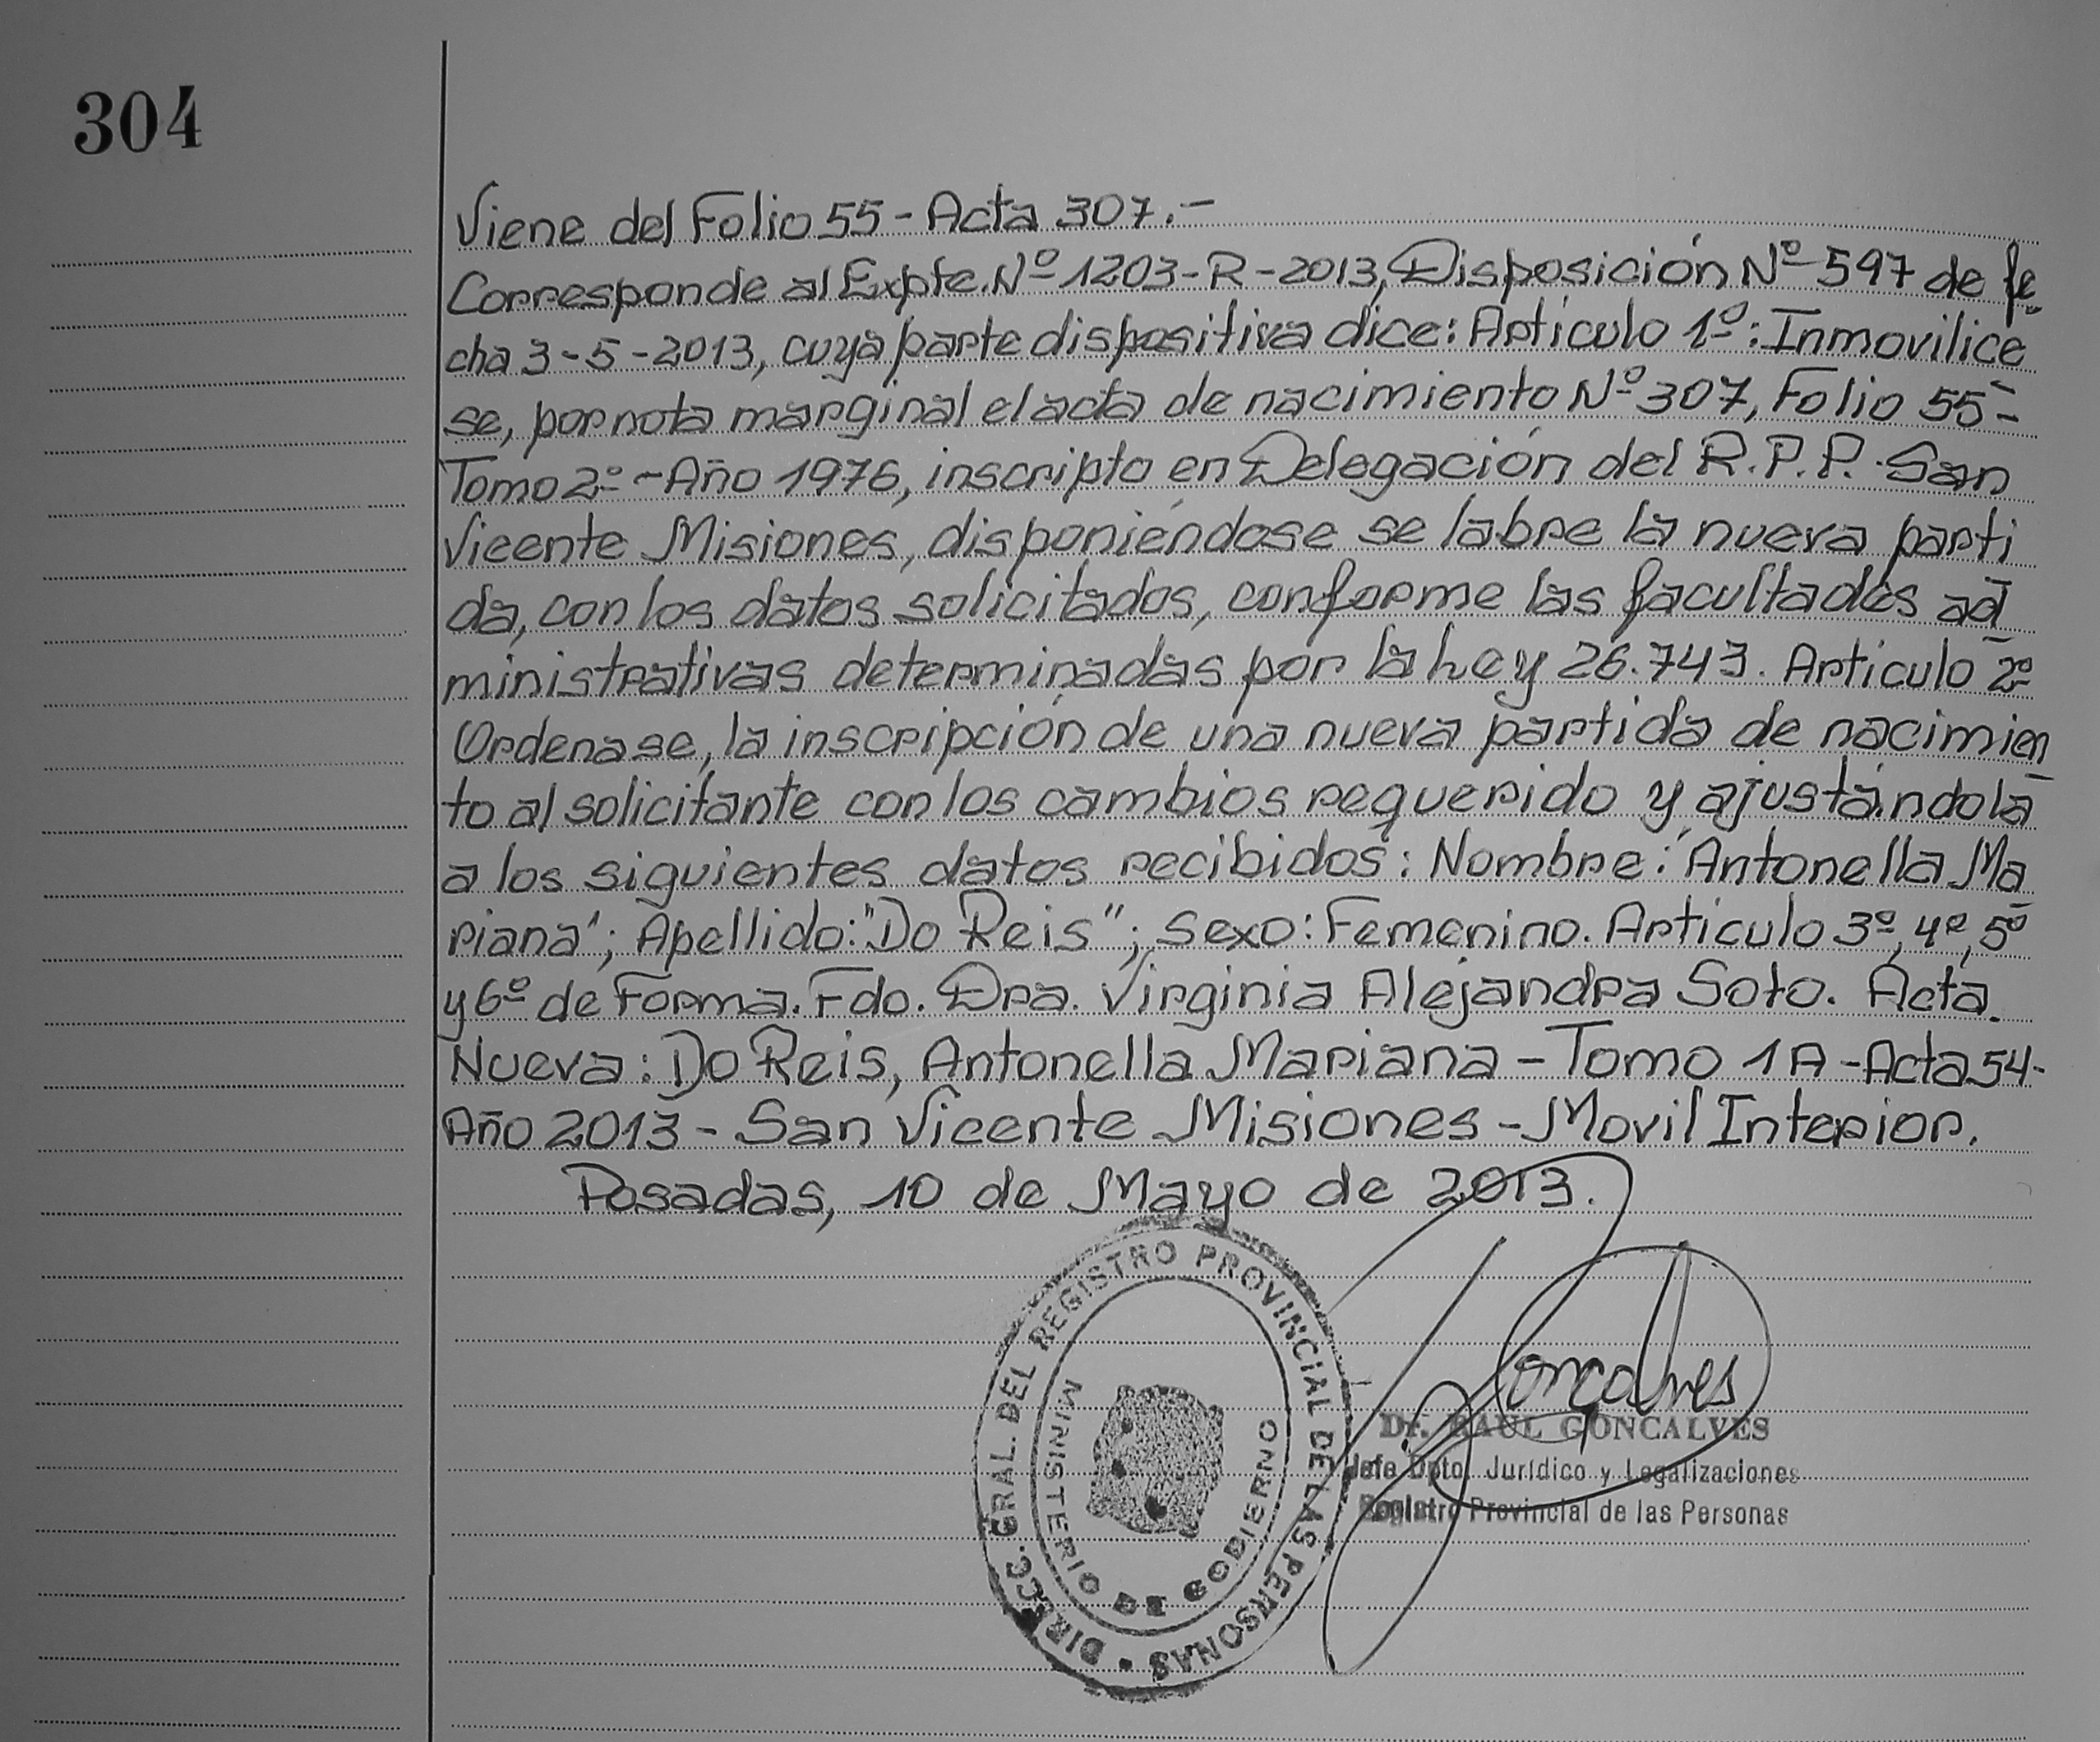 304
Viene del Folio 55 - Acta 307.-
Corresponde al Expte. Nº 1203-R-2013, Disposición Nº 597 de fe
cha 3-5-2013, cuya parte dispositiva dice: Artículo 1º: Inmovilice
se, por nota marginal el acta de nacimiento Nº 307, Folio 55-
Tomo 2º - Año 1976, inscripto en Delegación del R.P.P. San
Vicente Misiones, disponiéndose se labre la nueva parti
da, con los datos solicitados, conforme las facultades ad
ministrativas determinadas por la Ley 26.743. Artículo 2º
Ordenase, la inscripción de una nueva partida de nacimien
to al solicitante con los cambios requerido y ajustándola
a los siguientes datos recibidos: Nombre: "Antonella Ma
riana"; Apellido: "Do Reis"; Sexo: Femenino. Artículo 3º, 4º, 5º
y 6º de Forma. Fdo. Dra. Virginia Alejandra Soto. Acta
Nueva: Do Reis, Antonella Mariana - Tomo 1A - Acta 54-
Año 2013 - San Vicente Misiones - Movil Interior.
Posadas, 10 de Mayo de 2013.
DIRECC. GRAL. DEL REGISTRO PROVINCIAL DE LAS PERSONAS
MINISTERIO DE GOBIERNO
Goncalves
Dr. RAUL GONCALVES
Jefe Dpto. Jurídico y Legalizaciones
Registro Provincial de las Personas